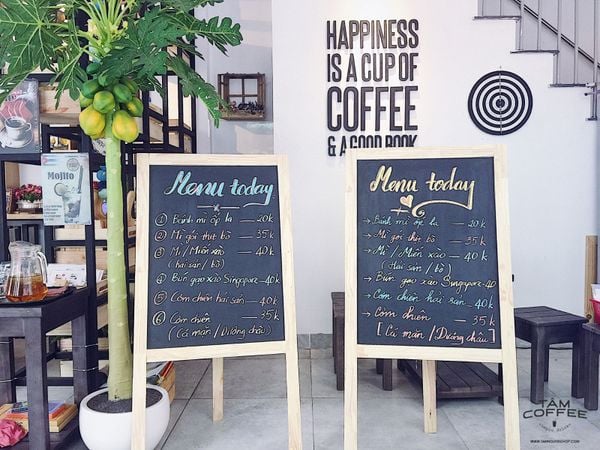 HAPPINESS
IS A CUP OF
COFFEE
& A GOOD BOOK
Mojito
Menu today
① Bánh mì ốp la — 20k
② Mì gói thịt bò — 35k
③ Mì / Miến xào — 40k
(hải sản / bò)
④ Bún gạo xào Singapore - 40k
⑤ Cơm chiên hải sản - 40k
⑥ Cơm chiên — 35k
(Cá mặn / Dương châu)
Menu today
→ Bánh mì ốp la — 20k
→ Mì gói thịt bò — 35k
→ Mì / Miến xào — 40k
(Hải sản / bò)
→ Bún gạo xào Singapore - 40k
→ Cơm chiên hải sản - 40k
→ Cơm chiên — 35k
[ Cá mặn / Dương châu ]
TÁM
COFFEE